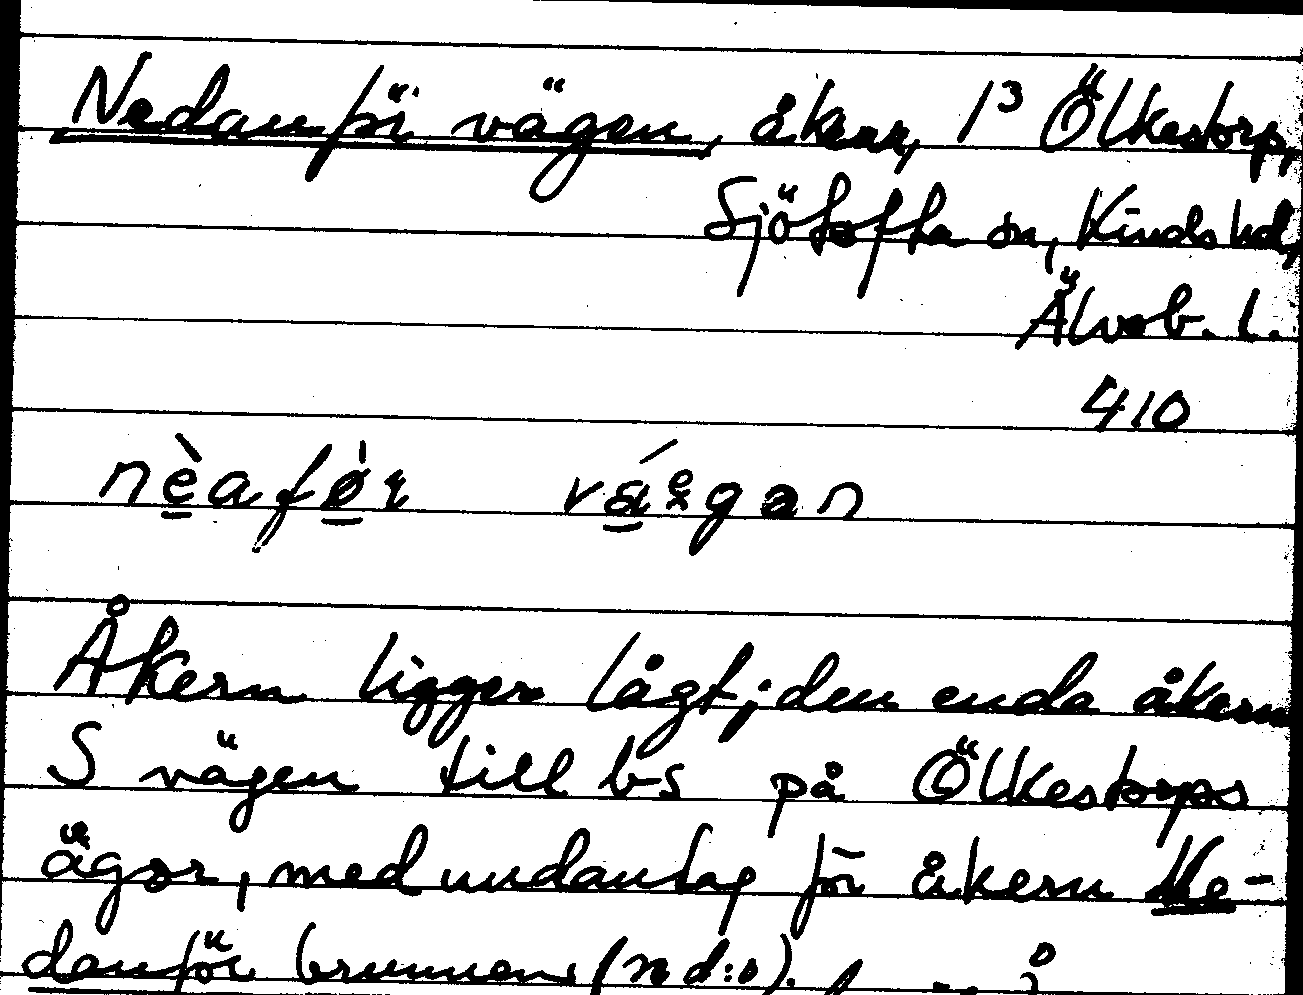 Nedanför vägen, åker, 1³ Ölkestorp,
Sjötofta sn, Kinds hd,
Älvsb. l.
410
nèafør vágən
Åkern ligger lågt; den enda åkern
S vägen till bs på Ölkestorps
ägor, med undantag för åkern Ne-
danför brunnen (n d:o).